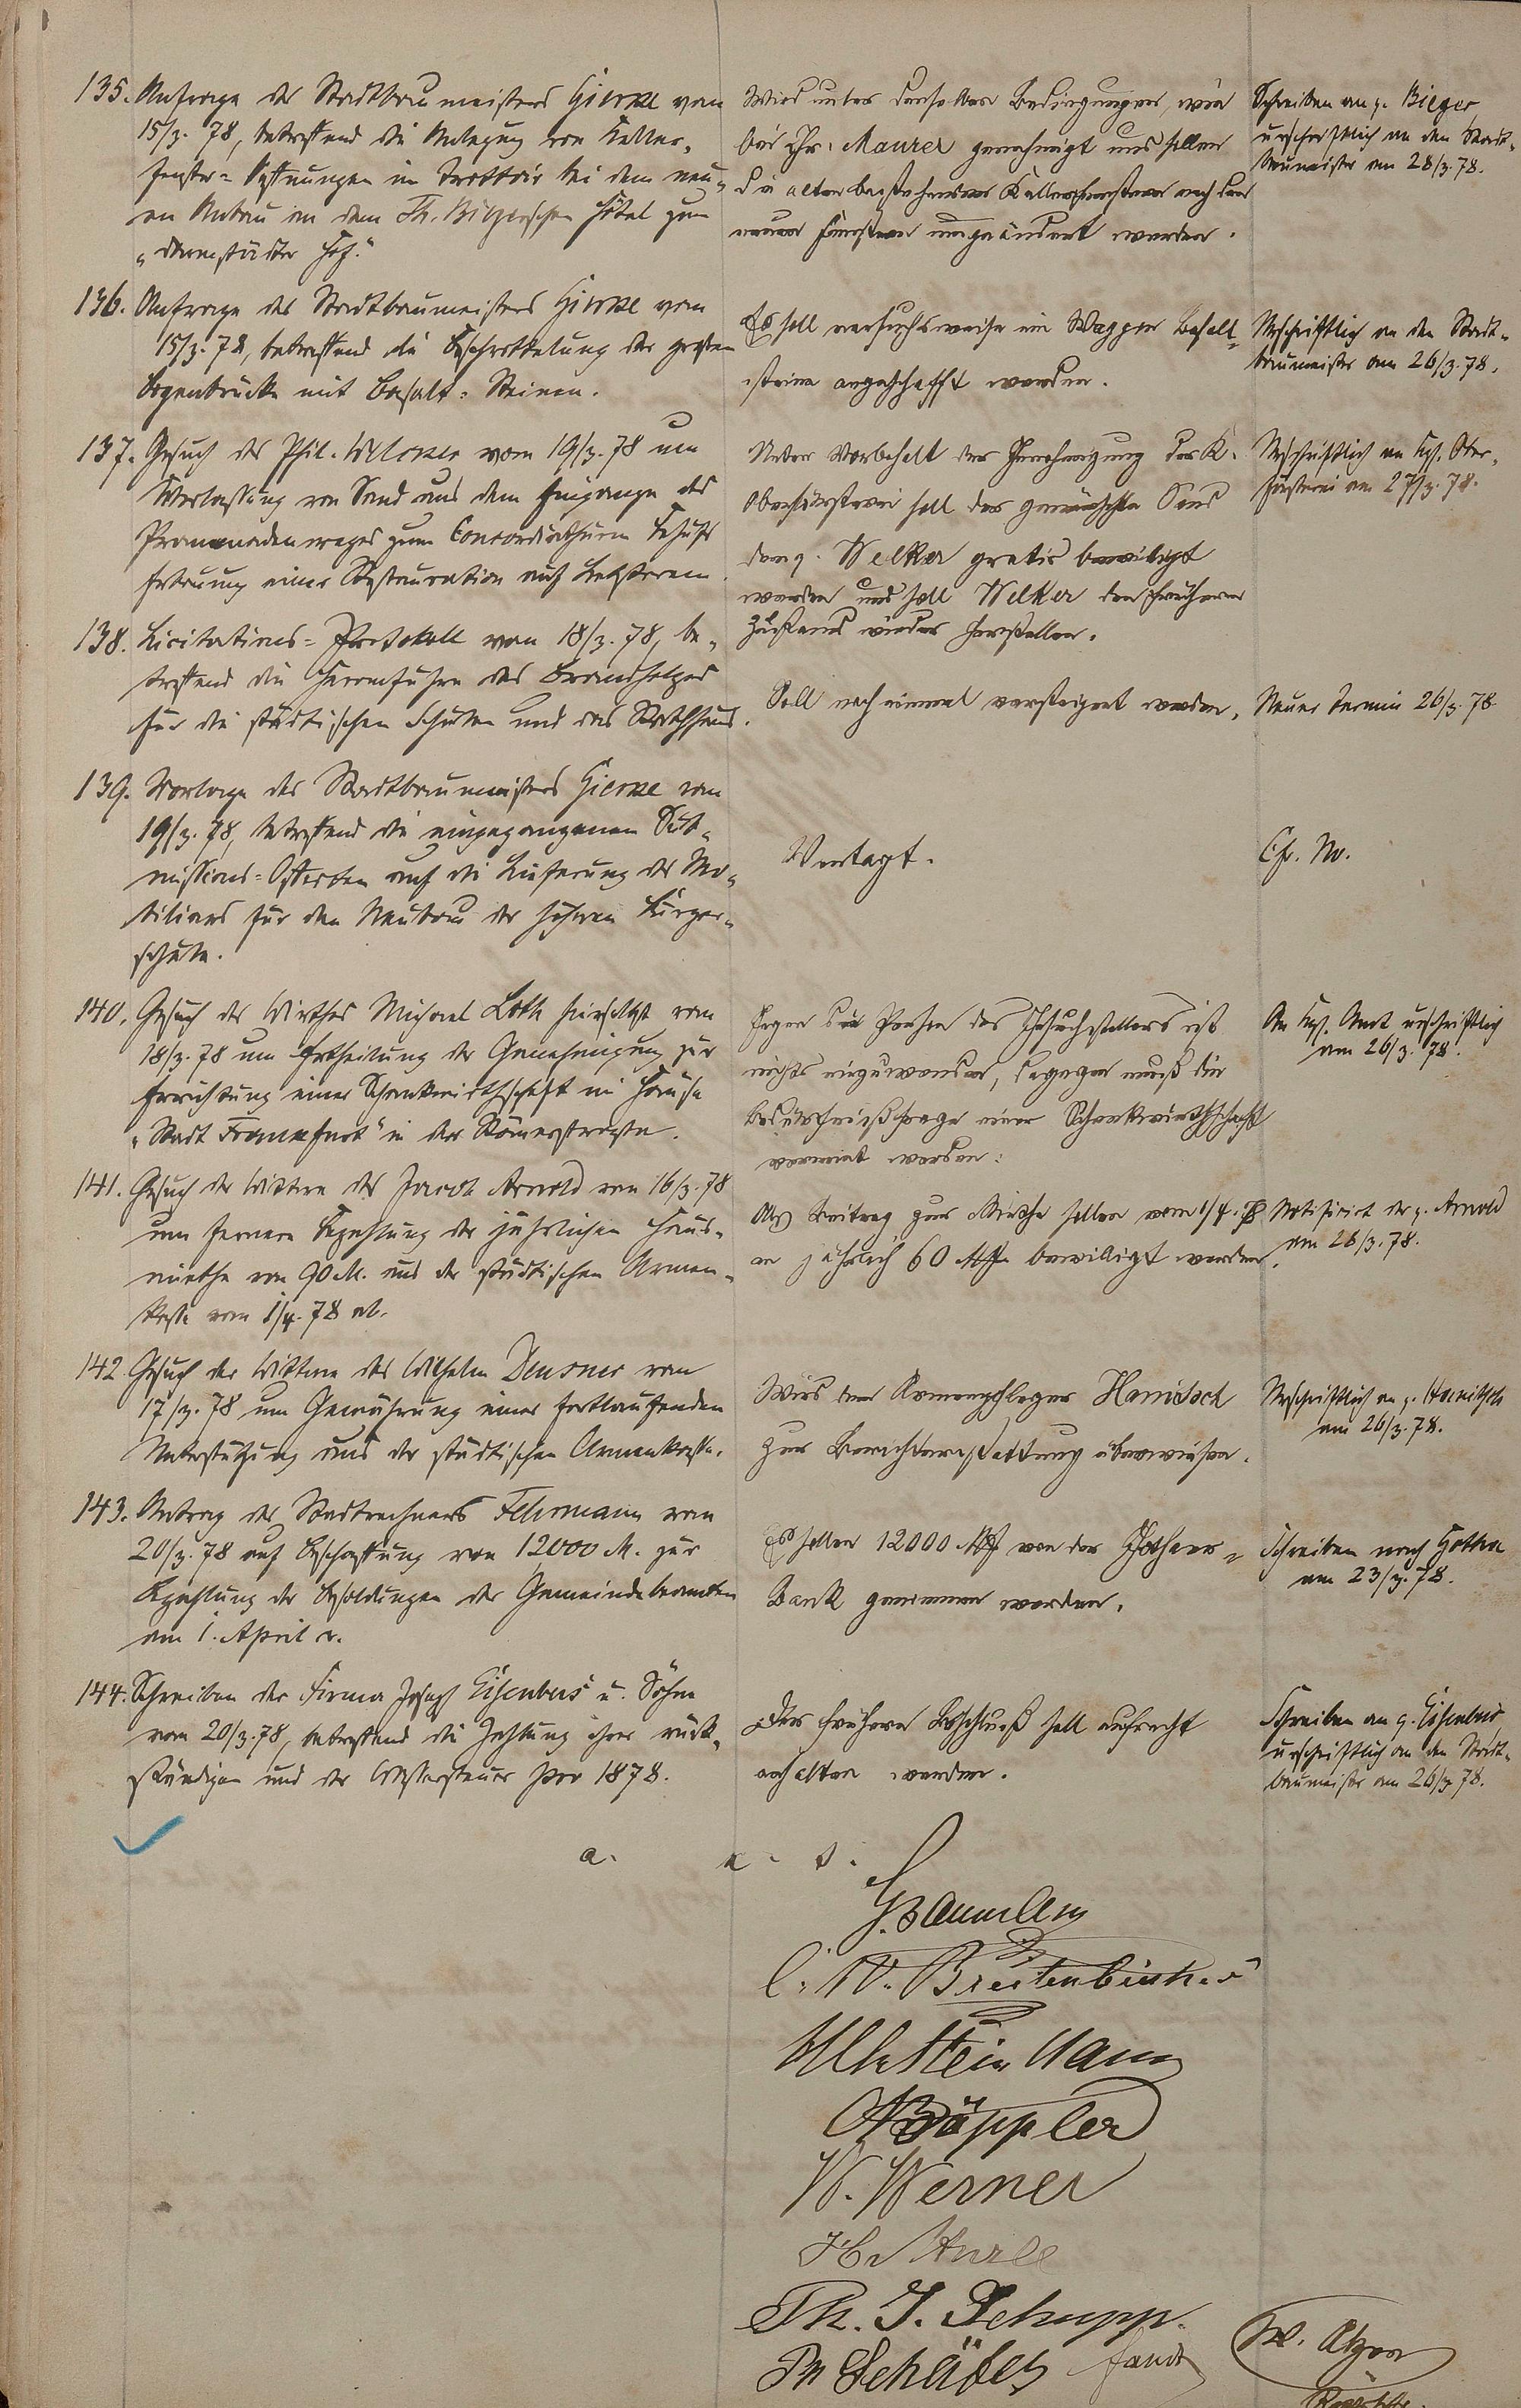 135. Anfrage des Stadtbaumeisters Gierke vom
15/3. 78, betreffend die Anlegung von Keller-
fenster-Oeffnungen im Trottoir bei dem neu-
en Anbau an dem Th. Bieger'schen Hôtel zum
"Darmstädter Hof."
Wird unter denselben Bedingungen, wie
bei Chr. Maurer genehmigt und sollen
die alten bestehenden Kellerfenster nach den
neuen Fenstern umgeändert werden.
Schreiben an p. Bieger,
urschriftlich an den Stadt-
baumeister am 28/3. 78.
136. Anfrage des Stadtbaumeisters Gierke vom
15/3. 78, betreffend die Beschottelung der großen
Bogenbrücke mit Basalt-Steinen.
Es soll versuchsweise ein Waggon Basalt-
steine angeschafft werden.
Urschriftlich an den Stadt-
baumeister am 26/3. 78.
137. Gesuch des Phil. Welker vom 19/3. 78 um
Überlassung von Sand aus dem Eingange des
Promenadenweges zum Concordiathurm behufs
Erbauung einer Restauration auf Letzterem.
Unter Vorbehalt der Genehmigung der K.
Oberförsterei soll der gewünschte Sand
dem p. Welker gratis bewilligt
werden und soll Welker den früheren
Zustand wieder herstellen.
Urschriftlich an Kgl. Ober-
försterei am 27/3. 78.
138. Licitations-Protokoll vom 18/3. 78, be-
treffend die Heranfuhre des Brandholzes
für die städtischen Schulen und das Rathhaus.
Soll noch einmal versteigert werden.
Neuer Termin 26/3. 78.
139. Vorlage des Stadtbaumeisters Gierke vom
19/3. 78, betreffend die eingegangenen Sub-
missions-Offerten auf die Lieferung des Mo-
biliars für den Neubau der höheren Bürger-
schule.
Vertagt.
Cfr. No.
140. Gesuch des Wirthes Michael Loth hierselbst vom
18/3. 78 um Ertheilung der Genehmigung zur
Errichtung einer Schankwirthschaft im Hause
"Stadt Frankfurt" in der Römerstraße.
Gegen die Person des Gesuchstellers ist
nichts einzuwenden, dagegen muß die
Bedürfnißfrage einer Schankwirthschaft
verneint werden.
An Kgl. Amt urschriftlich
am 26/3. 78.
141. Gesuch der Wittwe des Jacob Arnold vom 16/3. 78
um fernere Bezahlung der jährlichen Haus-
miethe von 90 M. aus der städtischen Armen-
kasse vom 1/4. 78 ab.
Als Beitrag zur Miethe sollen vom 1/4. 78
an jährlich 60 Mk bewilligt werden.
Notificirt der p. Arnold
am 26/3. 78.
142. Gesuch der Wittwe des Wilhelm Deusner vom
17/3. 78 um Gewährung einer fortlaufenden
Unterstützung aus der städtischen Armenkasse.
Wird dem Armenpfleger Hanitsch
zur Berichterstattung überwiesen.
Urschriftlich an p. Hanitsch
am 26/3. 78.
143. Antrag des Stadtrechners Fehrmann vom
20/3. 78 auf Beschaffung von 12000 M. zur
Bezahlung der Besoldungen der Gemeindebeamten
am 1. April c.
Es sollen 12000 Mk von der Gothaer-
Bank genommen werden.
Schreiben nach Gotha
am 23/3. 78.
144. Schreiben der Firma Joseph Eisenberg u. Söhne
vom 20/3. 78, betreffend die Zahlung ihrer rück-
ständigen und der Wassersteuer pro 1878.
Der frühere Beschluß soll aufrecht
erhalten werden.
Schreiben an p. Eisenberg,
urschriftlich an den Stadt-
baumeister am 26/3. 78.
a. u. s.
C. W. Breitenbücher
A. Bäppler
W. Werner
Th. J. Schupp.
Ph Schäfer